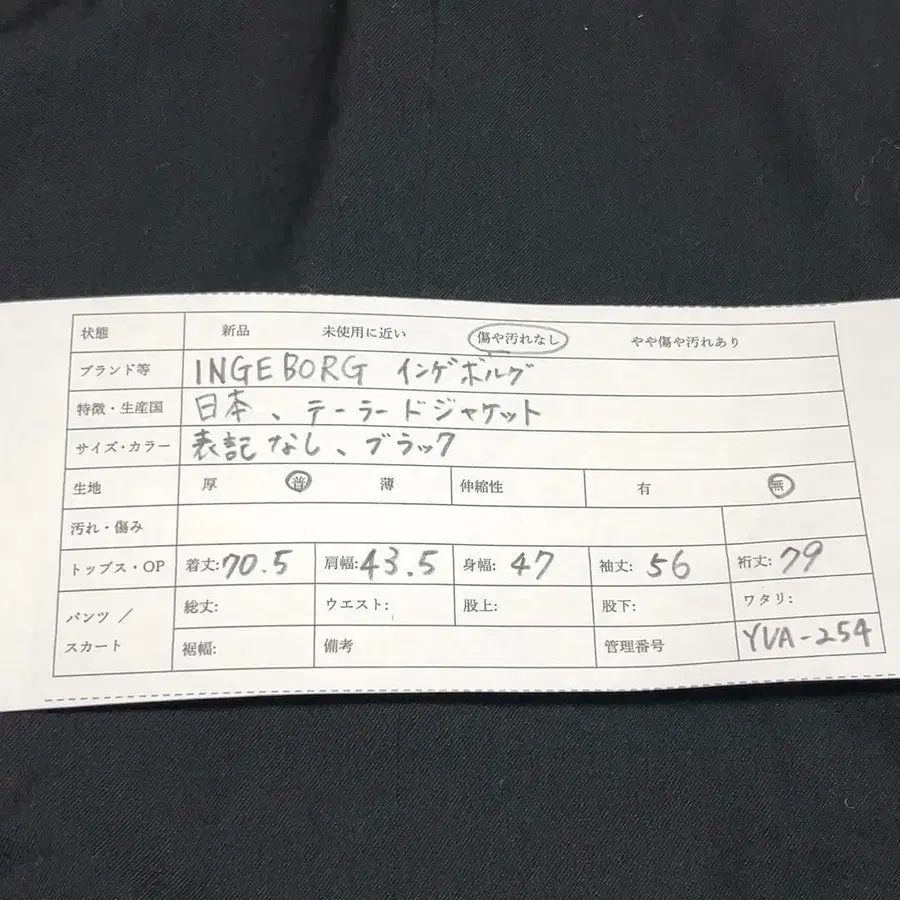 状態 新品 未使用に近い 傷や汚れなし やや傷や汚れあり
ブランド等 INGEBORG インゲボルグ
特徴・生産国 日本、テーラードジャケット
サイズ・カラー 表記なし、ブラック
生地 厚 普 薄 伸縮性 有 無
汚れ・傷み
トップス・OP 着丈:70.5 肩幅:43.5 身幅:47 袖丈:56 裄丈:79
パンツ／スカート 総丈: ウエスト: 股上: 股下: ワタリ:
裾幅: 備考 管理番号 YVA-254